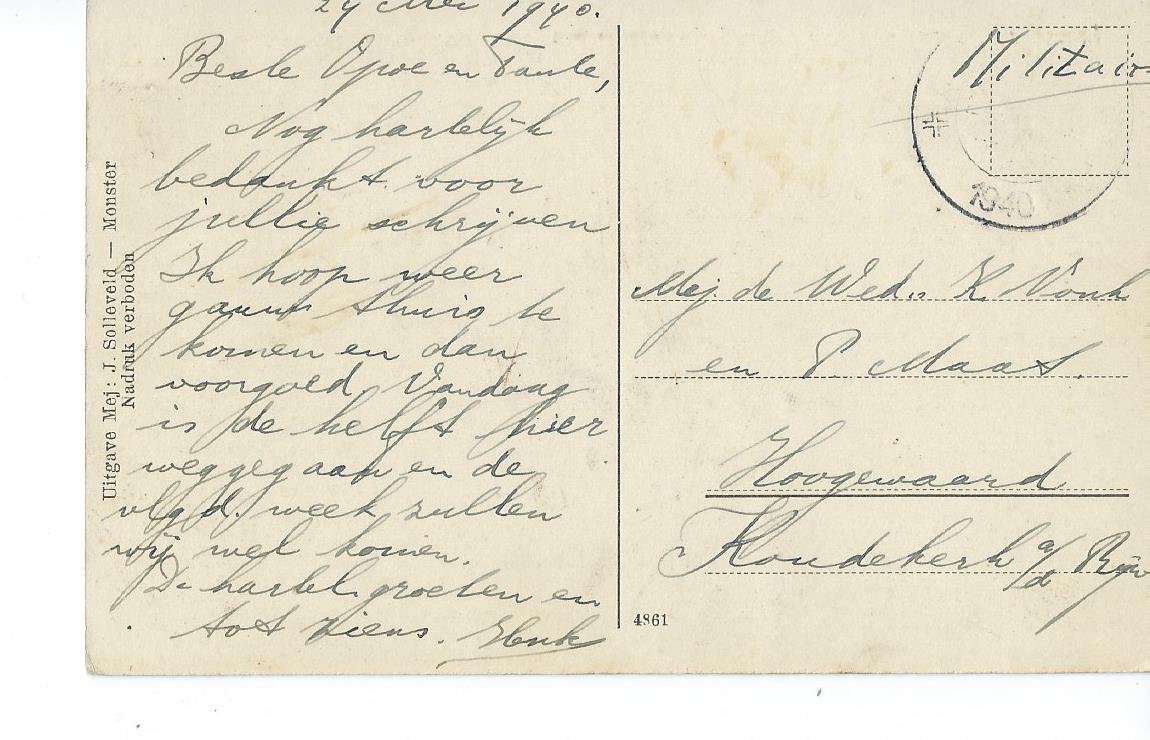 24 Mei 1940.
Beste Opoe en Tante,
Nog hartelijk
bedankt voor
jullie schrijven
Ik hoop weer
gauw thuis te
komen en dan
voorgoed. Vandaag
is de helft hier
weggegaan en de
vlgd. week zullen
wij wel komen.
De hartel. groeten en
tot ziens. Henk
Uitgave Mej: J. Solleveld — Monster
Nadruk verboden
4861
Militair
1940
Mej. de Wed. K Vonk
en P. Maat.
Hoogewaard
Koudekerk a/d Rijn